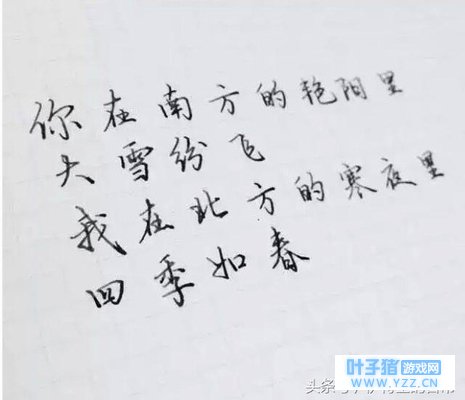 你在南方的艳阳里
大雪纷飞
我在北方的寒夜里
四季如春
叶子猪游戏网
www.YZZ.CN